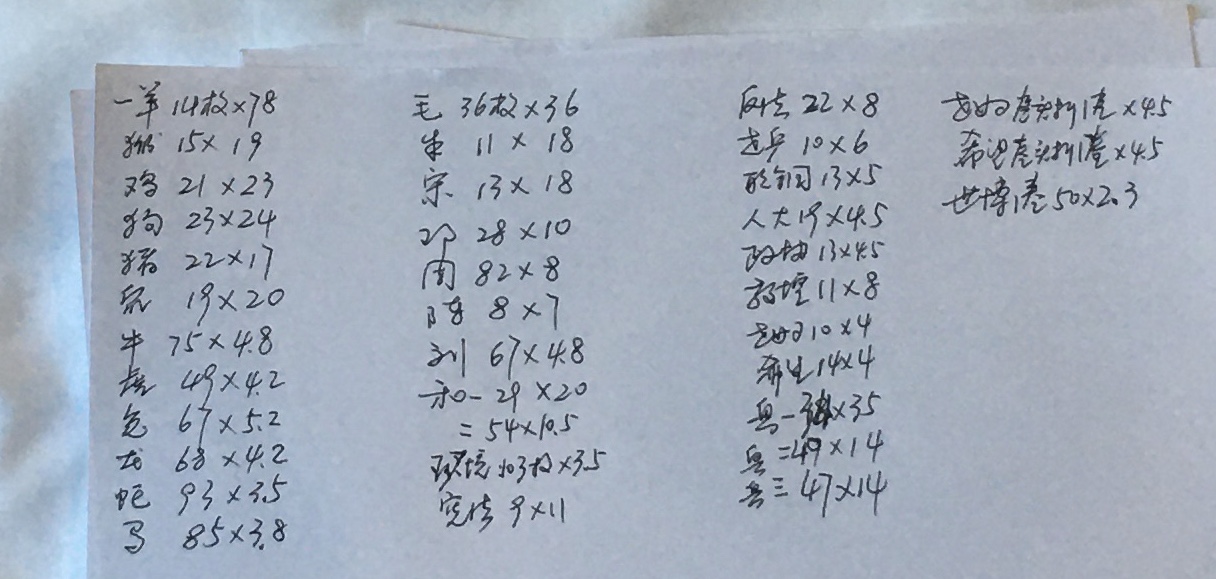 一羊 14枚×78
猴 15×19
鸡 21×23
狗 23×24
猪 22×17
鼠 19×20
牛 75×4.8
虎 49×4.2
兔 67×5.2
龙 68×4.2
蛇 93×3.5
马 85×3.8
毛 36枚×36
朱 11×18
宋 13×18
邓 28×10
周 82×8
陈 8×7
刘 67×4.8
和一 29×20
二 54×10.5
环境 103枚×3.5
宪法 9×11
反法 22×8
老兵 10×6
13×5
人大 19×4.5
政协 13×4.5
敦煌 11×8
10×4
14×4
鸟一 ×35
鸟二 49×14
鸟三 47×14
×4.5
×4.5
世博 50×2.3